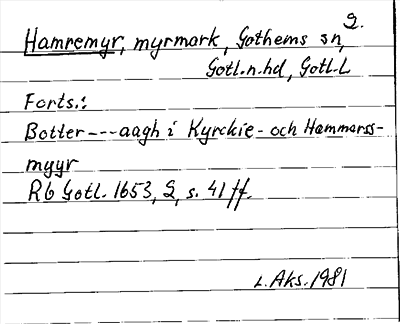 2.
Hamremyr, myrmark, Gothems sn,
Gotl.n.hd, Gotl.L
Forts.:
Botter---aagh i Kyrckie- och Hammarss-
myyr
Rb Gotl. 1653, 2, s. 41 ff.
L. Aks. 1981